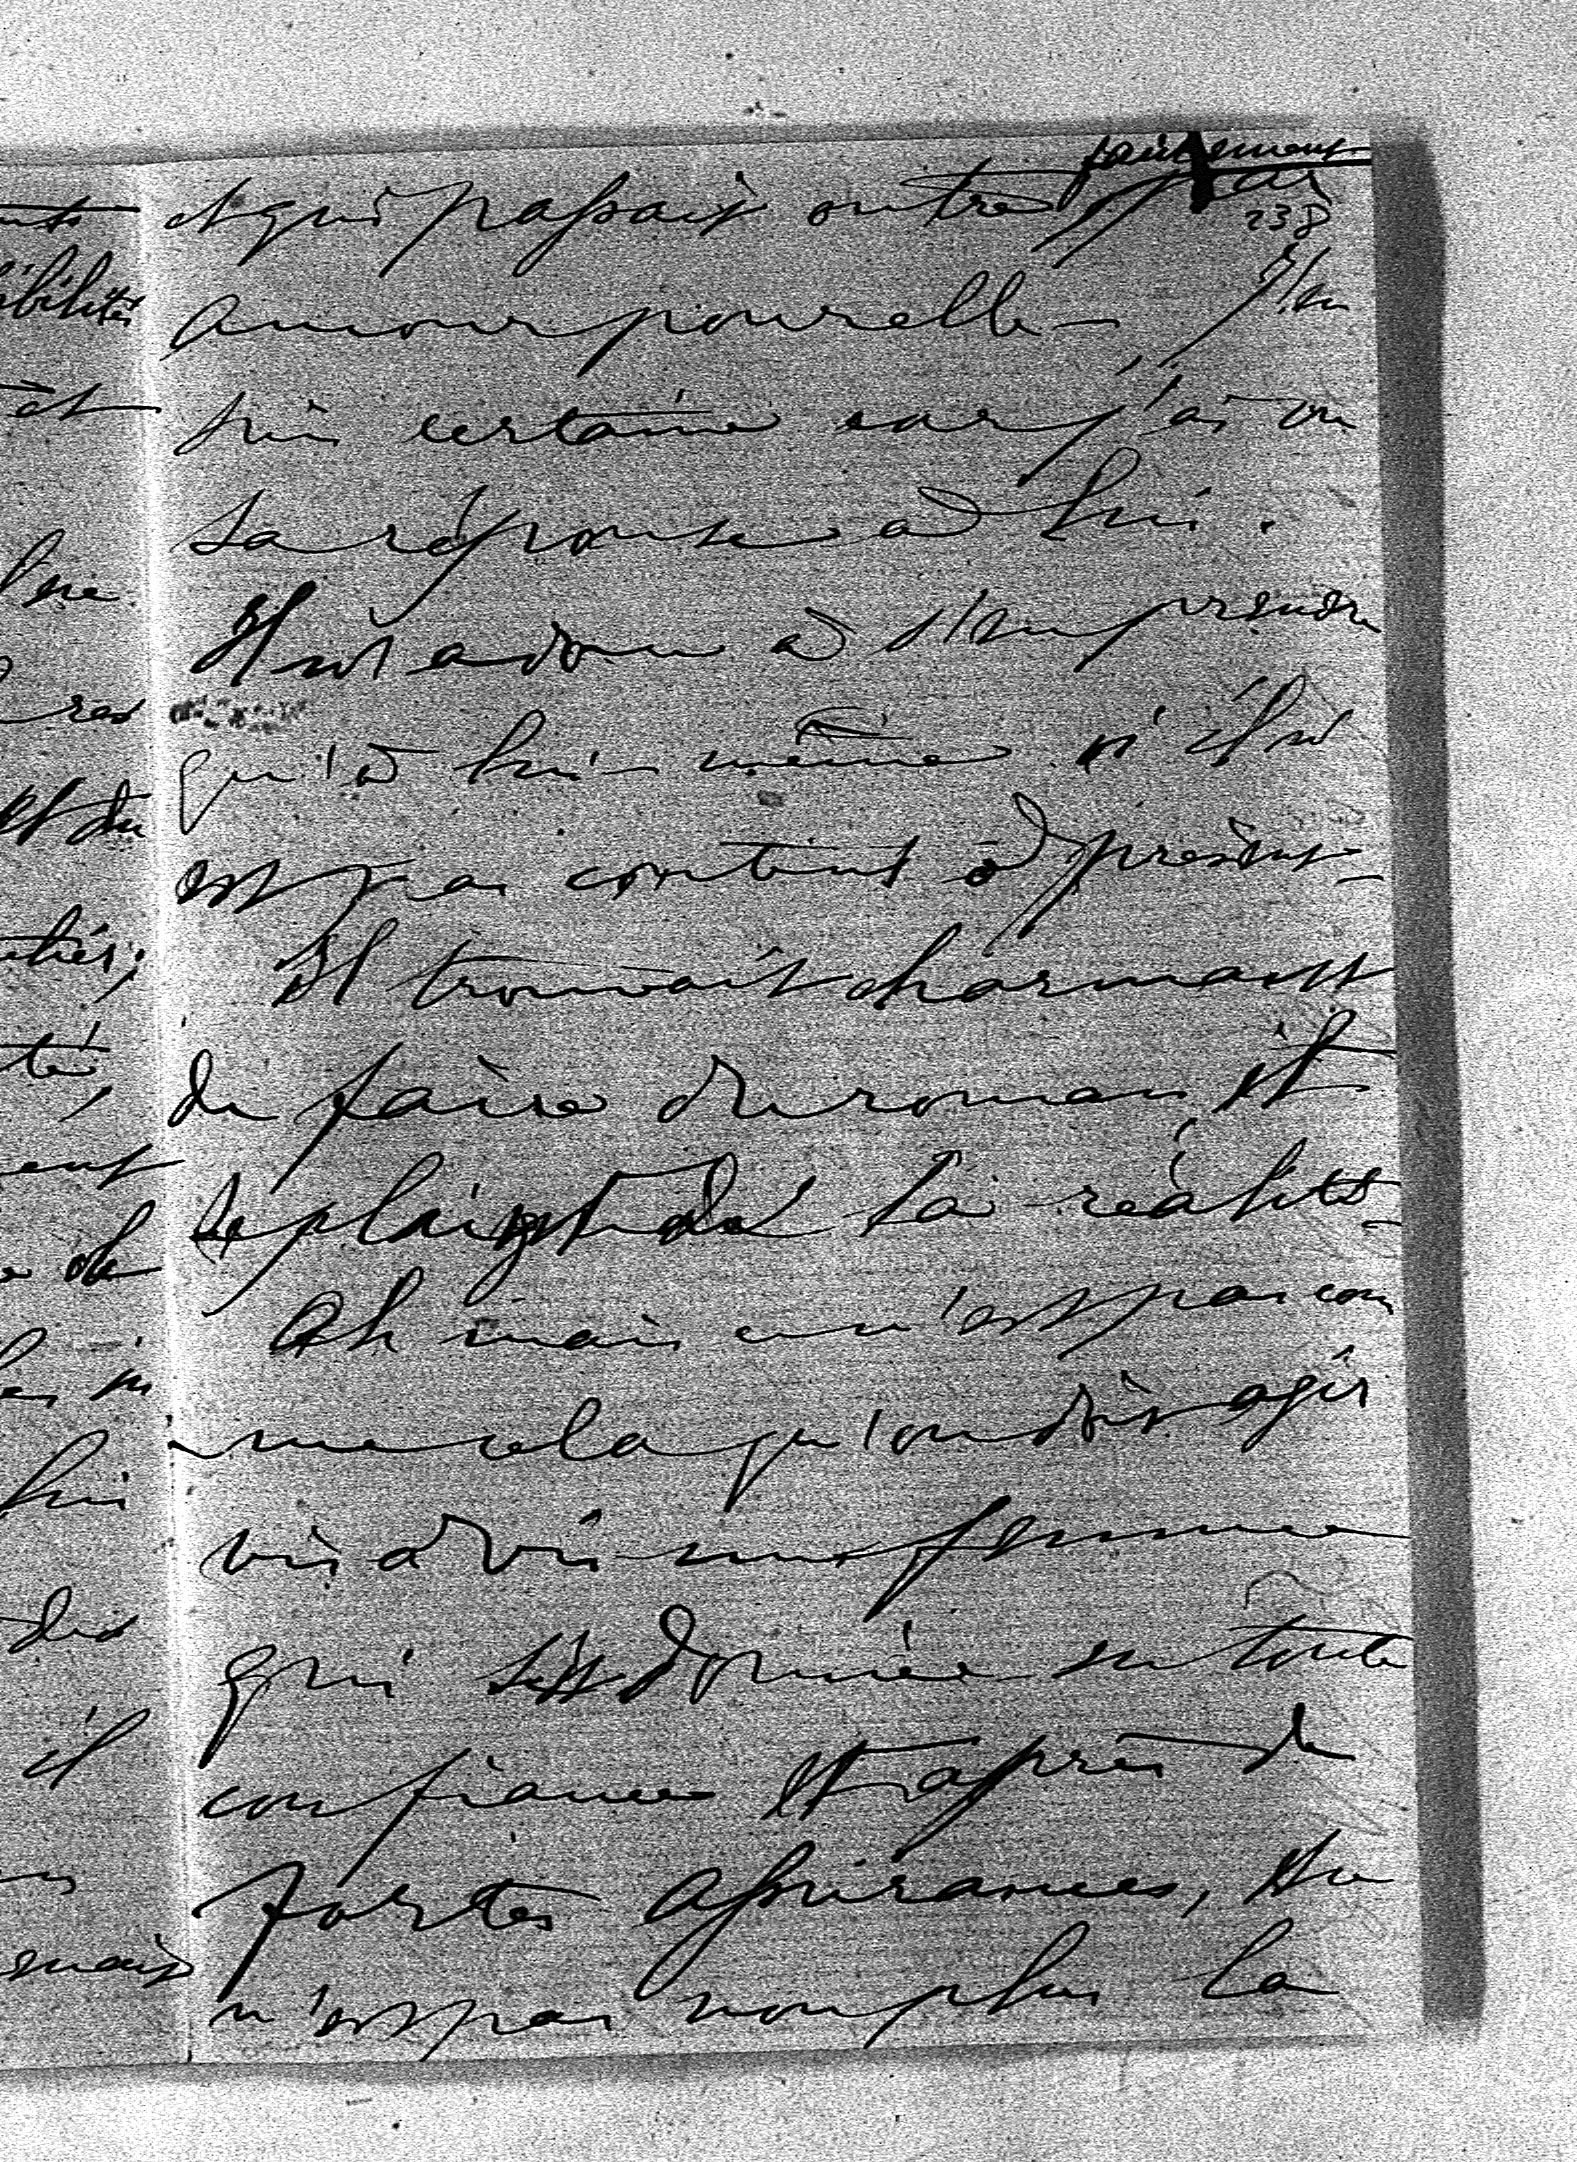 et qui passait outre par
238
amour pour elle – J'en
suis certaine car j'ai vu
sa réponse à lui.
Il n'a donc à s'en prendre
qu'à lui-même s'il n'
est pas content à présent –
Il trouvait charmant
de faire du roman, et
se plaint de la réalité –
Ah mais ce n'est pas com
me cela qu'on doit agir
vis à vis une femme
qui s'est donnée en toute
confiance et après de
fortes assurances, ce
n'est pas non plus la
nts
ibilités
et
ne
res
et du
té,
ent
de
lui
des
il
mais